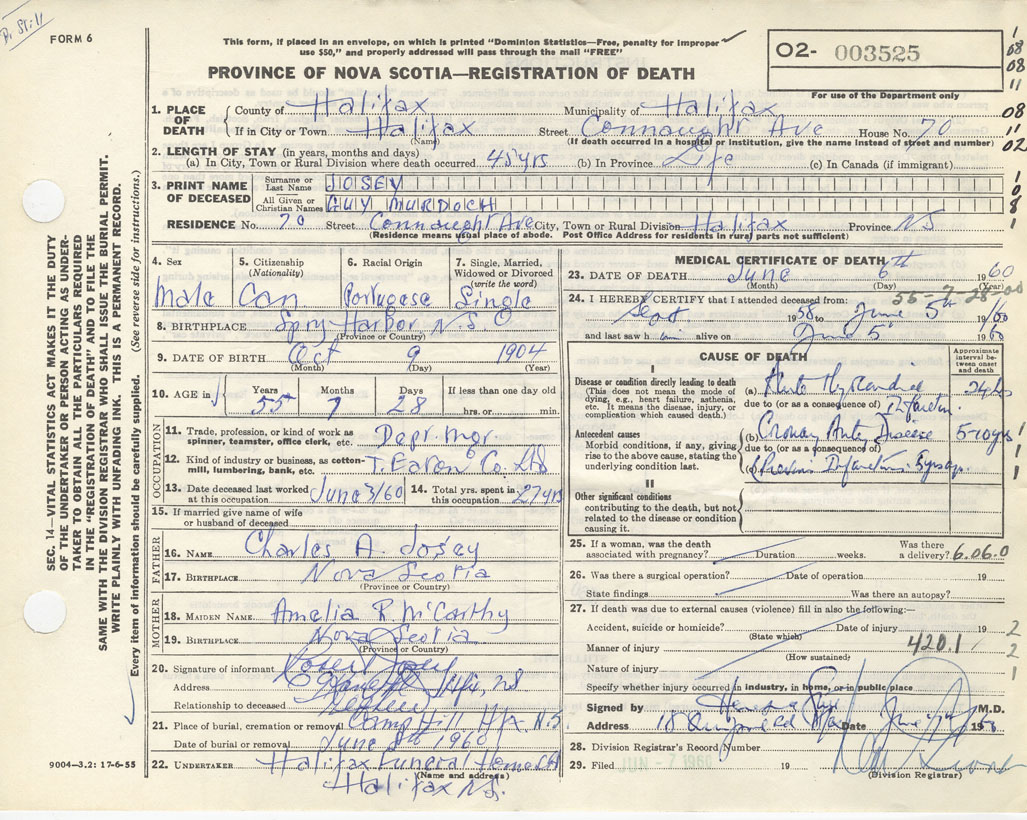 FORM 6
This form, if placed in an envelope, on which is printed "Dominion Statistics—Free, penalty for improper
use $50," and properly addressed will pass through the mail "FREE"
O2- 003525
For use of the Department only
PROVINCE OF NOVA SCOTIA—REGISTRATION OF DEATH
1. PLACE OF DEATH
County of Halifax Municipality of Halifax
If in City or Town Halifax Street Connaught Ave House No. 70
(Name) (If death occurred in a hospital or institution, give the name instead of street and number)
2. LENGTH OF STAY (in years, months and days)
(a) In City, Town or Rural Division where death occurred 45 yrs (b) In Province Life (c) In Canada (if immigrant)
3. PRINT NAME OF DECEASED
Surname or Last Name JOSEY
All Given or Christian Names GUY MURDOCH
RESIDENCE No. 70 Street Connaught Ave City, Town or Rural Division Halifax Province NS
(Residence means usual place of abode. Post Office Address for residents in rural parts not sufficient)
4. Sex Male
5. Citizenship (Nationality) Can
6. Racial Origin Portugese
7. Single, Married, Widowed or Divorced (write the word) Single
8. BIRTHPLACE Spry Harbor, N.S.
(Province or Country)
9. DATE OF BIRTH Oct 9 1904
(Month) (Day) (Year)
10. AGE in Years 55 Months 7 Days 28 If less than one day old hrs. or min.
OCCUPATION
11. Trade, profession, or kind of work as spinner, teamster, office clerk, etc. Dept. Mgr
12. Kind of industry or business, as cotton-mill, lumbering, bank, etc. T. Eaton Co. Ltd
13. Date deceased last worked at this occupation June 3/60 14. Total yrs. spent in this occupation 27 yrs
15. If married give name of wife or husband of deceased
FATHER
16. NAME Charles A. Josey
17. BIRTHPLACE Nova Scotia
(Province or Country)
MOTHER
18. MAIDEN NAME Amelia R. McCarthy
19. BIRTHPLACE Nova Scotia
(Province or Country)
20. Signature of informant Robert Josey
Address
Relationship to deceased Nephew
21. Place of burial, cremation or removal Camp Hill Hfx. N.S
Date of burial or removal June 8th 1960
22. UNDERTAKER Halifax Funeral Home Ltd
(Name and address)
Halifax N.S.
MEDICAL CERTIFICATE OF DEATH
23. DATE OF DEATH June 6th 1960
(Month) (Day) (Year)
55-7-28-00
24. I HEREBY CERTIFY that I attended deceased from:
Sept. 1958 to June 5th 1960
and last saw him alive on June 5 1960
CAUSE OF DEATH
Approximate interval between onset and death
I
Disease or condition directly leading to death
(This does not mean the mode of dying, e.g., heart failure, asthenia, etc. It means the disease, injury, or complication which caused death.)
(a) Acute Myocardial
due to (or as a consequence of) Infarction.
Antecedent causes
Morbid conditions, if any, giving rise to the above cause, stating the underlying condition last.
(b) Disease 5-10 yrs
due to (or as a consequence of)
(c)
II
Other significant conditions
contributing to the death, but not related to the disease or condition causing it.
25. If a woman, was the death associated with pregnancy? Duration weeks. Was there a delivery? 6.06.0
26. Was there a surgical operation? Date of operation 19
State findings Was there an autopsy?
27. If death was due to external causes (violence) fill in also the following:—
Accident, suicide or homicide? Date of injury 19
(State which)
Manner of injury 420.1
(How sustained)
Nature of injury
Specify whether injury occurred in industry, in home, or in public place
Signed by M.D.
Address Date June
28. Division Registrar's Record Number
29. Filed JUN -7 1960 19
(Division Registrar)
SEC. 14—VITAL STATISTICS ACT MAKES IT THE DUTY
OF THE UNDERTAKER OR PERSON ACTING AS UNDER-
TAKER TO OBTAIN ALL THE PARTICULARS REQUIRED
IN THE "REGISTRATION OF DEATH" AND TO FILE THE
SAME WITH THE DIVISION REGISTRAR WHO SHALL ISSUE THE BURIAL PERMIT.
WRITE PLAINLY WITH UNFADING INK. THIS IS A PERMANENT RECORD.
Every item of information should be carefully supplied. (See reverse side for instructions.)
9004—3.2: 17-6-55